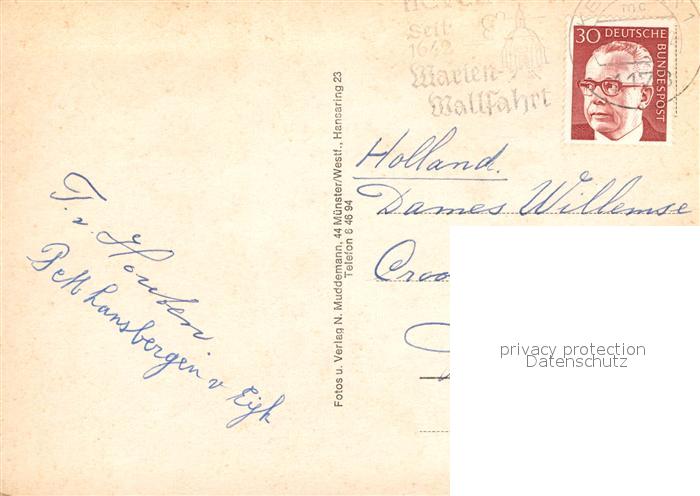 Seit
1642
Marien-
Wallfahrt
30 DEUTSCHE
BUNDESPOST
Fotos u. Verlag N. Muddemann, 44 Münster/Westf., Hansaring 23
Telefon 6 46 94
Holland.
Dames Willemse
Croo
T. v. Houben
P e M Lansbergen v Eijk
privacy protection
Datenschutz